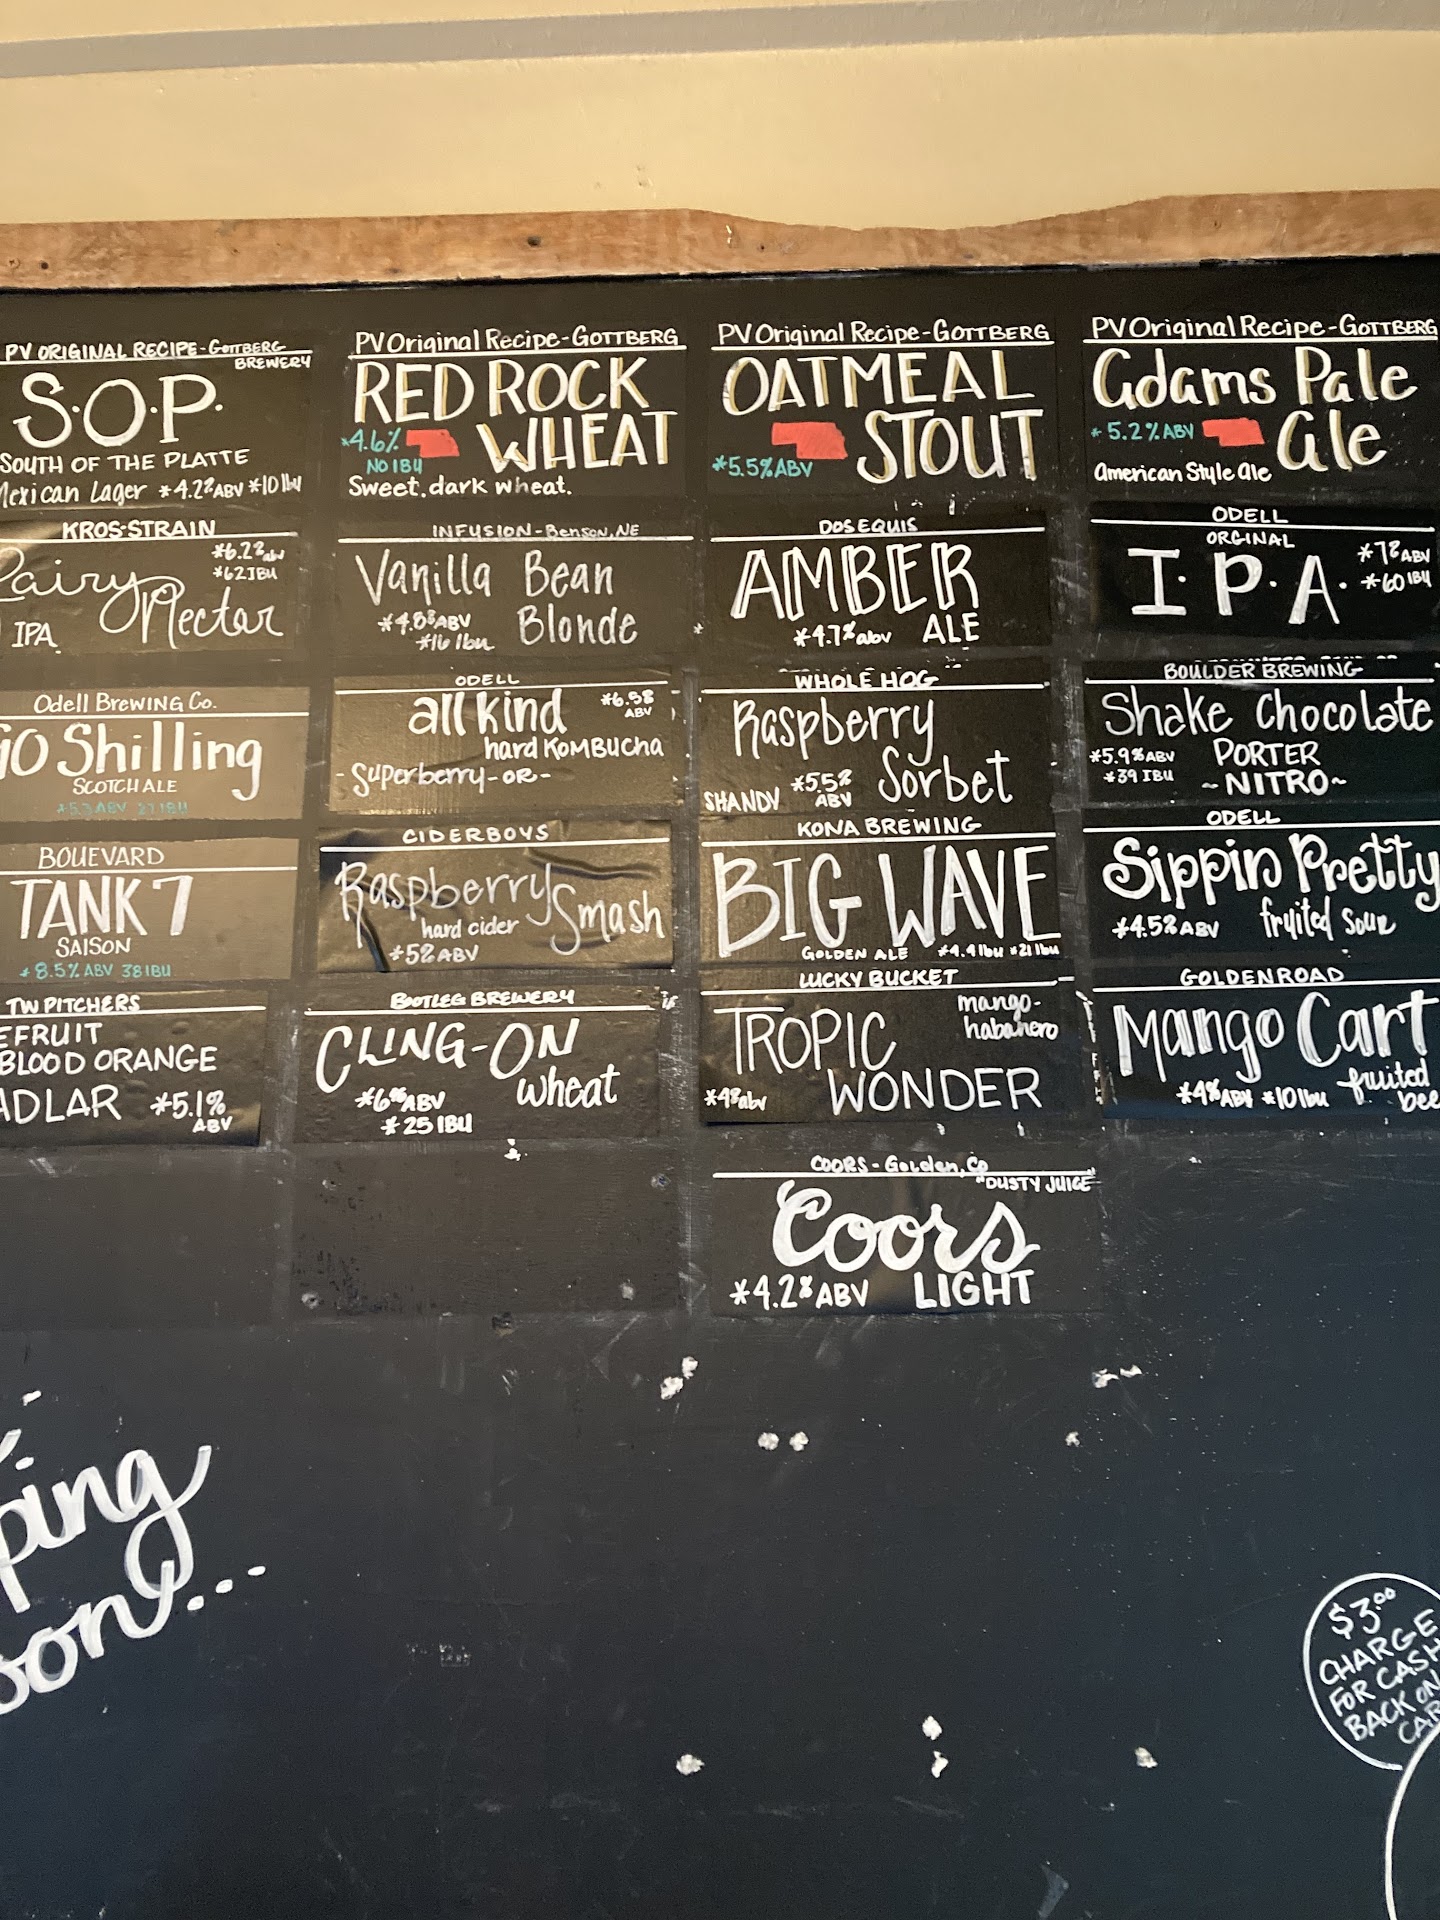 PV ORIGINAL RECIPE-GOTTBERG
BREWERY
S.O.P.
SOUTH OF THE PLATTE
Mexican Lager *4.2% ABV *10 ibu
PV Original Recipe-GOTTBERG
RED ROCK
WHEAT
*4.6%
NO IBU
Sweet. dark wheat.
PV Original Recipe-GOTTBERG
OATMEAL
STOUT
*5.5% ABV
PV Original Recipe-GOTTBERG
Adams Pale
Ale
*5.2% ABV
American Style Ale
KROS-STRAIN
*6.2% abv
*62 IBU
Fairy
Nectar
IPA
INFUSION-Benson, NE
Vanilla Bean
Blonde
*4.8% ABV
*16 ibu
DOS EQUIS
AMBER
ALE
*4.7% abv
ODELL
ORGINAL
I.P.A.
*7% ABV
*60 IBU
Odell Brewing Co.
90 Shilling
SCOTCH ALE
*5.3 ABV 27 IBU
ODELL
all kind
*6.5% ABV
hard KOMBUCHA
-Superberry-OR-
WHOLE HOG
Raspberry
Sorbet
SHANDY
*5.5%
ABV
BOULDER BREWING
Shake Chocolate
PORTER
~NITRO~
*5.9% ABV
*39 IBU
BOUEVARD
TANK 7
SAISON
*8.5% ABV 38 IBU
CIDERBOYS
Raspberry
Smash
hard cider
*5% ABV
KONA BREWING
BIG WAVE
GOLDEN ALE *4.4 ibu *21 ibu
ODELL
Sippin Pretty
*4.5% ABV
fruited sour
TW PITCHERS
EFRUIT
BLOOD ORANGE
ADLAR *5.1%
ABV
BOOTLEG BREWERY
CLING-ON
wheat
*6% ABV
*25 IBU
LUCKY BUCKET
mango-
habanero
TROPIC
WONDER
*4% abv
GOLDENROAD
Mango Cart
*4% ABV *10 ibu
fruited
bee
COORS-Golden, Co
"DUSTY JUICE"
Coors
LIGHT
*4.2% ABV
ping
oon...
$3.00
CHARGE
FOR CASH
BACK ON
CAR